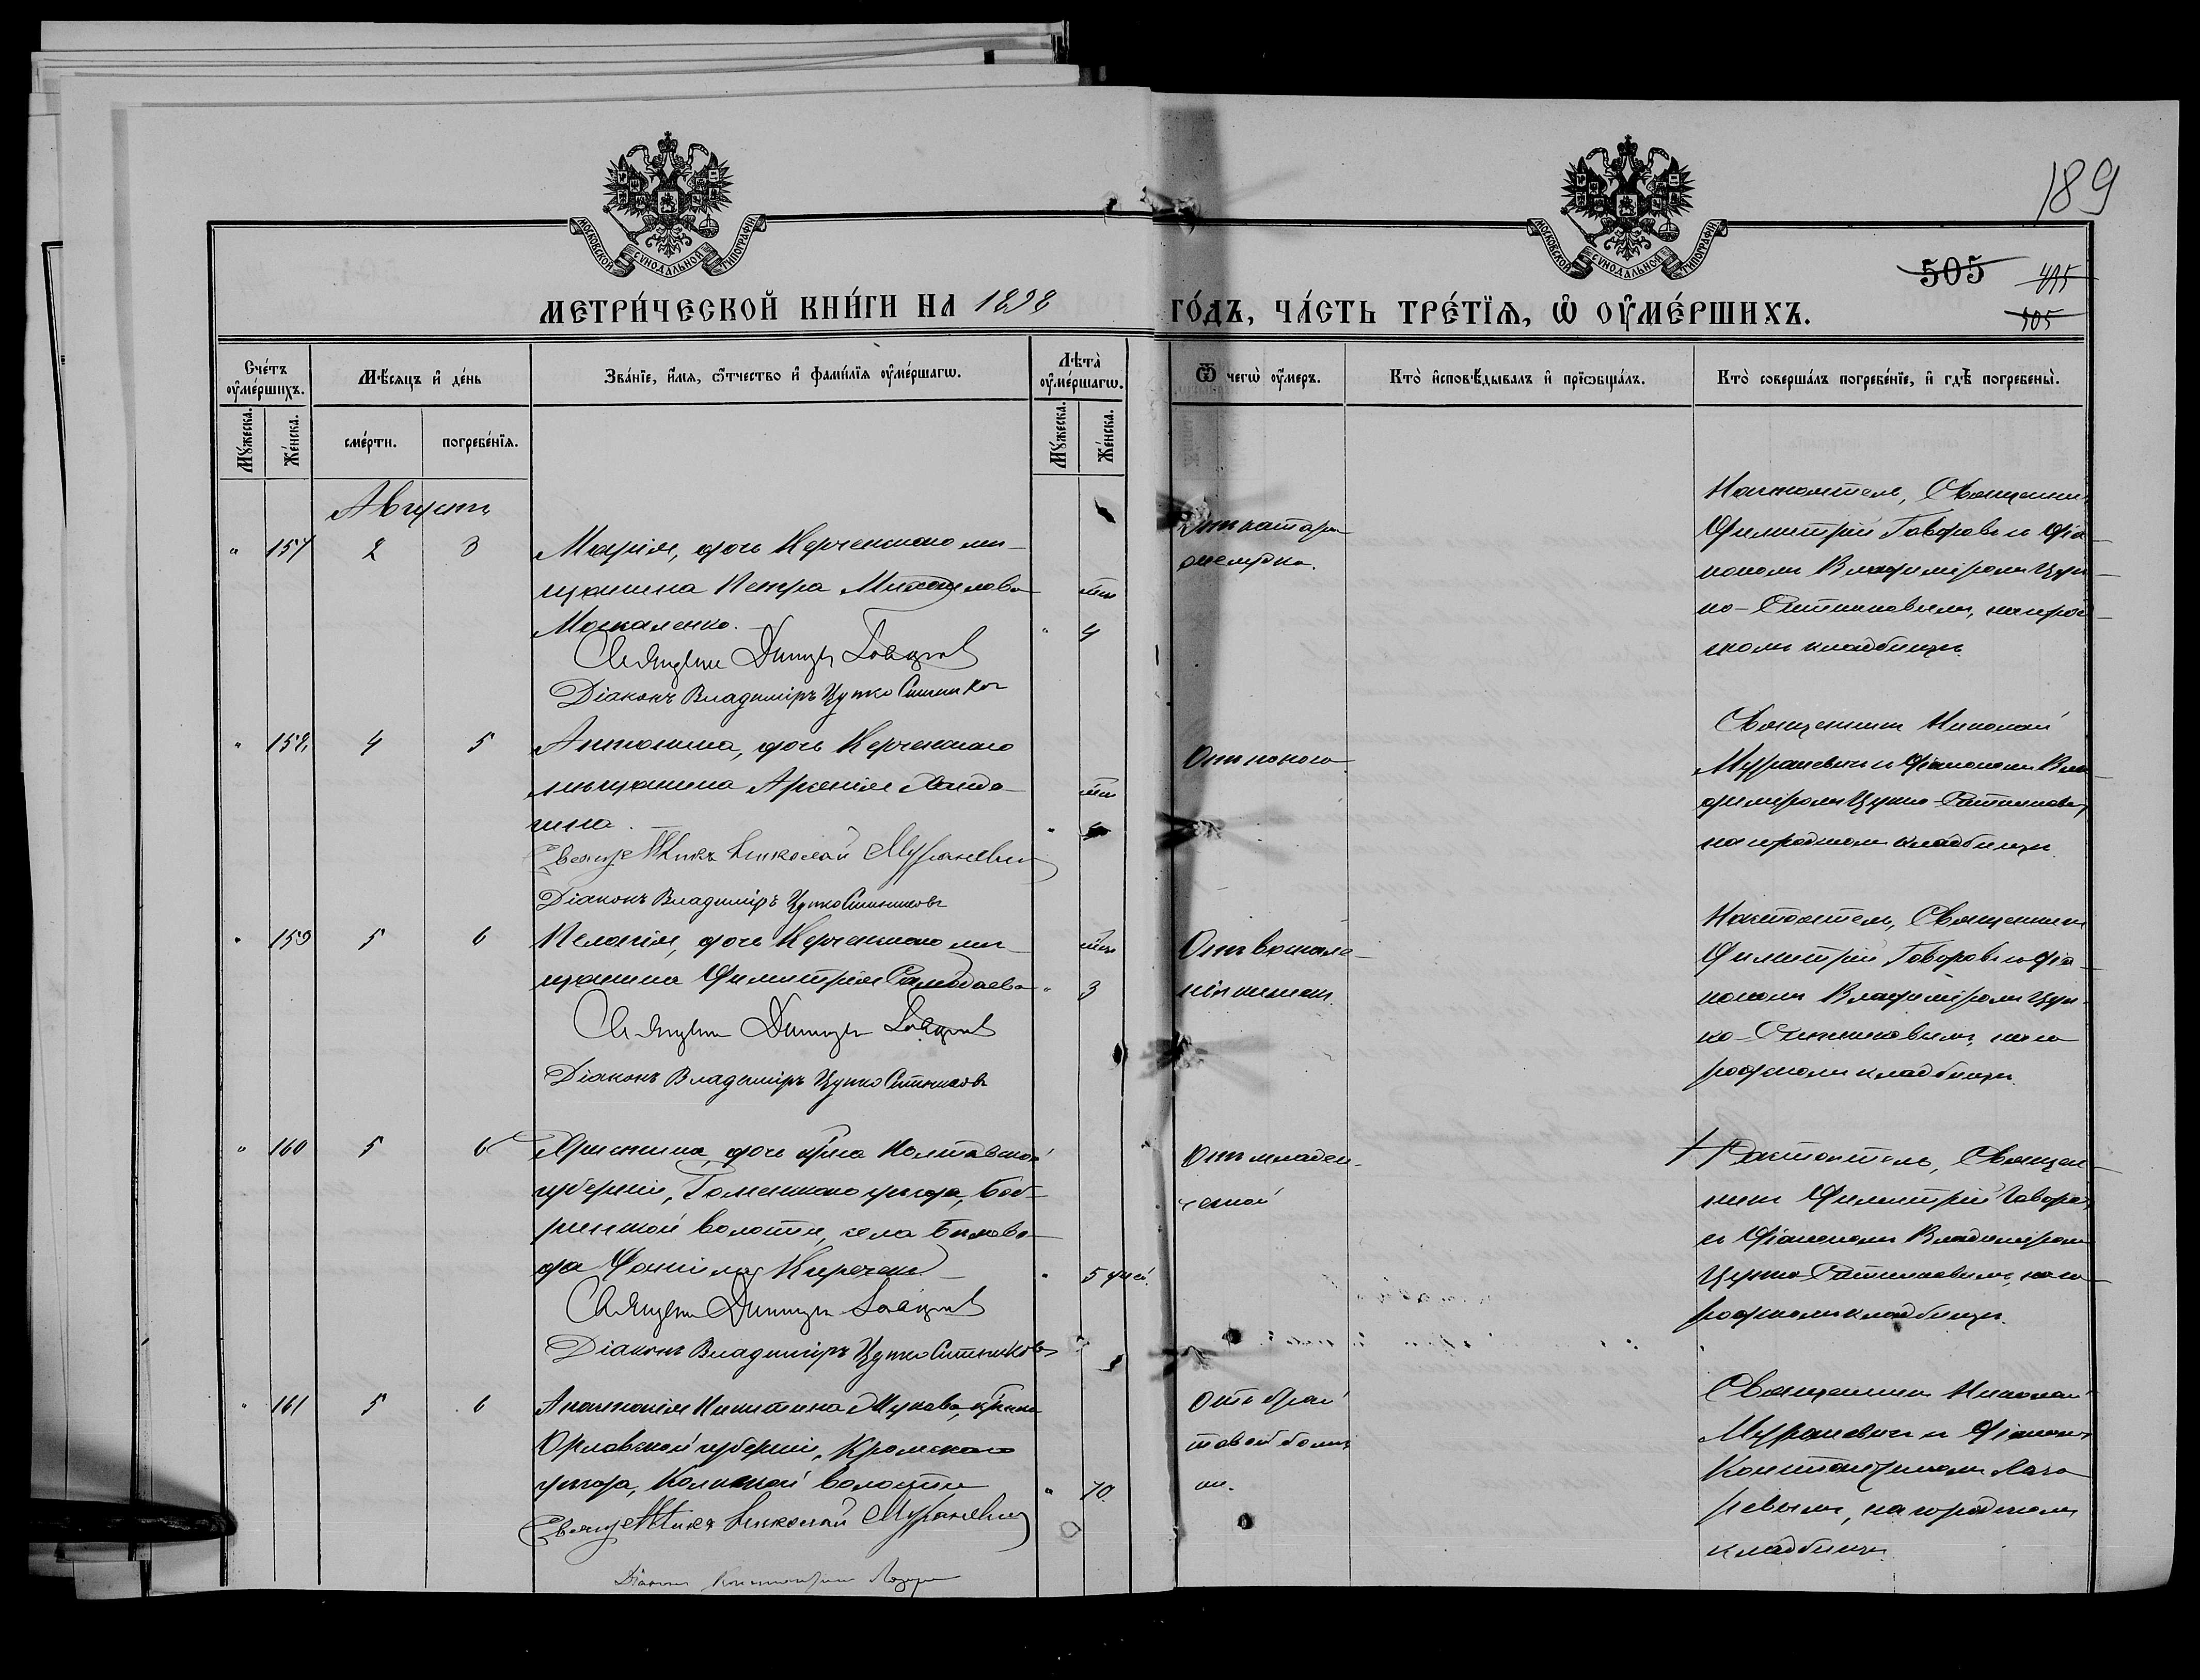 189
МОСКОВСКОЙ СѴНОДАЛЬНОЙ ТИПОГРАФІИ
МОСКОВСКОЙ СѴНОДАЛЬНОЙ ТИПОГРАФІИ
505
495
505
МЕТРИ́ЧЕСКОЙ КНИ́ГИ НА 1898 ГО́ДЪ, ЧА́СТЬ ТРЕ́ТЇѦ, Ѡ҆ ОУ҆МЕ́РШИХЪ.
Сче́тъ оу҆ме́ршихъ.
Мѣ́сяцъ и҆ де́нь
Зва́нїе, и҆́мѧ, ѻ҆́тчество и҆ фами́лїѧ оу҆ме́ршагѡ.
Лѣта̀ оу҆ме́ршагѡ.
Ѿ чегѡ̀ оу҆́меръ.
Кто̀ и҆сповѣ́дывалъ и҆ прїѡбща́лъ.
Кто̀ соверша́лъ погребе́нїе, и҆ гдѣ̀ погребены̀.
Мꙋ́жеска.
Же́нска.
сме́рти.
погребе́нїѧ.
Мꙋ́жеска.
Же́нска.
Августъ
" 157 2 3
Марія, дочь Керченскаго мѣ-
щанина Петра Михайлова
Москаленко.
" 4
Священн Димитр Говоров
Діаконъ Владиміръ Цупко Ситников
Отъ катара
желудка.
Настоятель, Священникъ
Димитрій Говоровъ съ діа-
кономъ Владиміромъ Цуп-
ко-Ситниковымъ, на город-
скомъ кладбищѣ.
" 158 4 5
Антонина, дочь Керченскаго
мѣщанина Арсенія
Священникъ Николай Мураневич
Діаконъ Владиміръ Цупко Ситниковъ
Отъ поноса.
Священникъ Николай
Мураневичъ съ діакономъ Вла-
диміромъ Цупко-Ситниковымъ,
на городскомъ кладбищѣ.
" 159 5 6
Пелагія, дочь Керченскаго мѣ-
щанина Димитрія
" 3
Священн Димитр Говоров
Діаконъ Владиміръ Цупко Ситниковъ
Отъ воспале-
нія кишекъ.
Настоятель, Священникъ
Димитрій Говоровъ съ діа-
кономъ Владиміромъ Цуп-
ко-Ситниковымъ, на го-
родскомъ кладбищѣ.
" 160 5 6
дочь кр-на Полтавской
губерніи, уѣзда, Боб-
рикской волости, села
Даніила
" 5 дней.
Священн Димитр Говоров
Діаконъ Владиміръ Цупко Ситниковъ
Отъ младен-
ческой
Настоятель, Священ-
никъ Димитрій Говоровъ
съ діакономъ Владиміромъ
Цупко-Ситниковымъ, на го-
родскомъ кладбищѣ.
" 161 5 6
Анастасія Никитина кр-нка
Орловской губерніи, Кромскаго
уѣзда, волости
" 70.
Священникъ Николай Мураневич
Діаконъ Константинъ Лазарев
Священникъ Николай
Мураневичъ съ діаконом
Константиномъ Лаза-
ревымъ, на городскомъ
кладбищѣ.